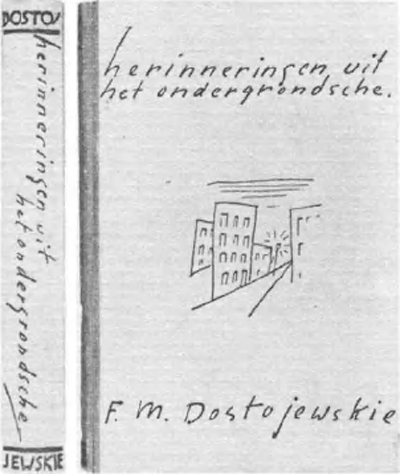 DOSTO
herinneringen uit
het ondergrondsche
JEWSKIE
herinneringen uit
het ondergrondsche.
F. M. Dostojewskie